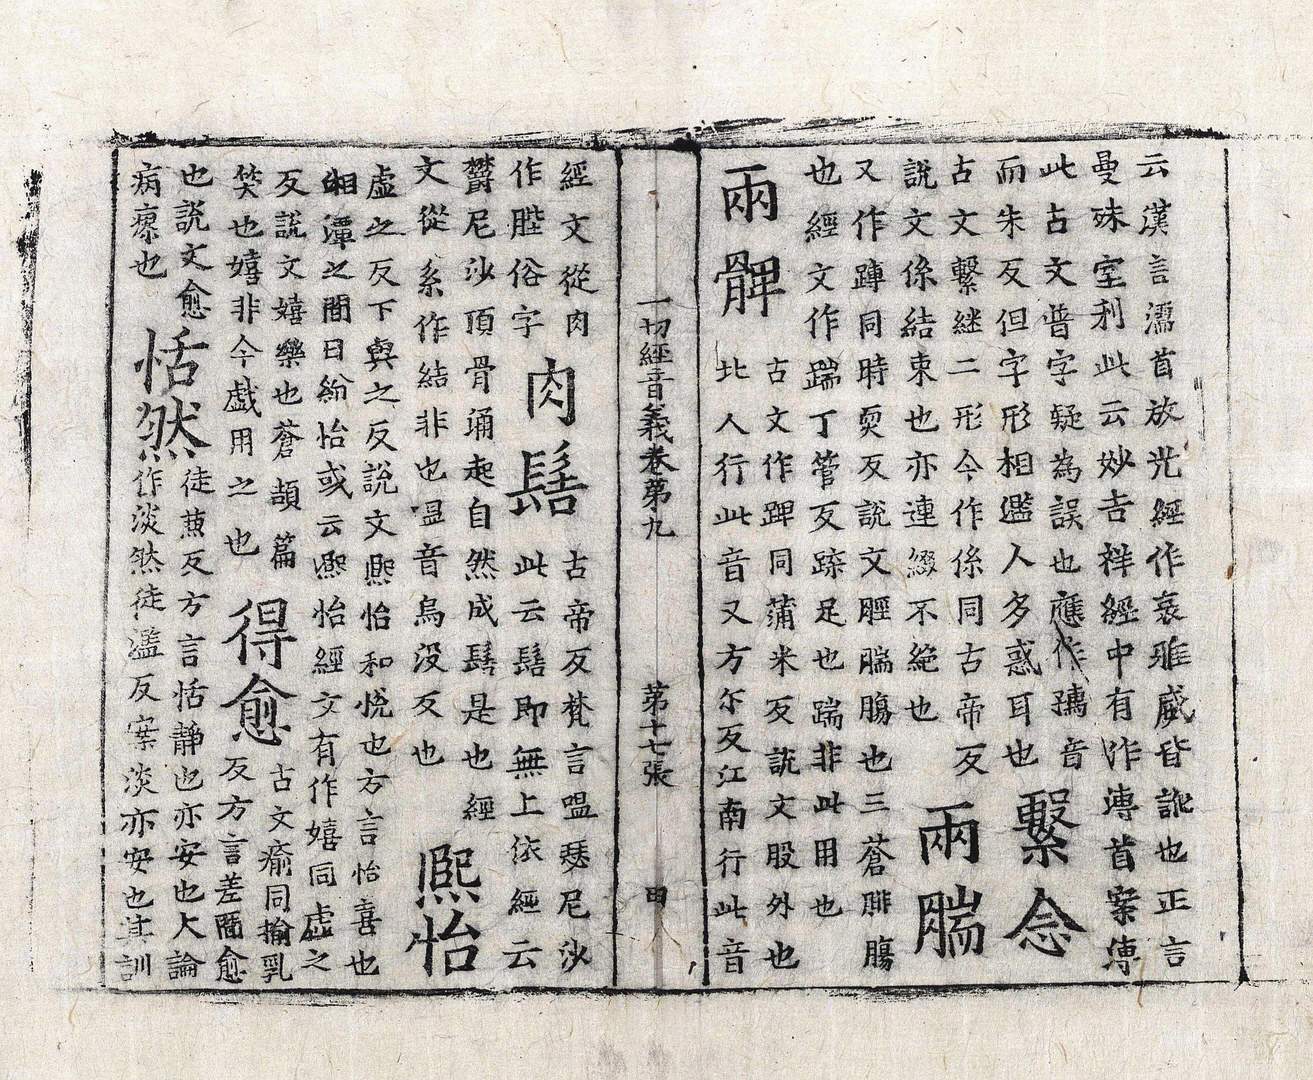 云漢言濡首放光經作哀雅威皆訛也正言
曼殊室利此云妙吉祥經中有作溥首案溥
此古文普字疑為誤也應作璓音
而朱反但字形相濫人多惑耳也
繫念
古文繫継二形今作係同古帝反
說文係結束也亦連綴不絶也
兩腨
又作䠊同時耎反說文脛腨膓也三蒼腓膓
也經文作踹丁管反䠱足也踹非此用也
兩髀
古文作踔同蒲米反說文股外也
北人行此音又方尔反江南行此音
一切經音義卷第九
第十七張
甲
經文從肉
作䏶俗字
肉髻
古帝反梵言嗢瑟尼沙
此云髻即無上依經云
欝尼沙頂骨涌起自然成髻是也經
文從糸作結非也嗢音烏没反也
熙怡
虛之反下與之反說文熙怡和悅也方言怡喜也
湘潭之間曰紛怡或云熙怡經文有作嬉同虛之
反說文嬉樂也蒼頡篇
笑也嬉非今戲用之也
得愈
古文瘉同揄乳
反方言差間愈
也說文愈
病瘳也
恬然
徒蒹反方言恬静也亦安也大論
作淡然徒濫反案淡亦安也其訓